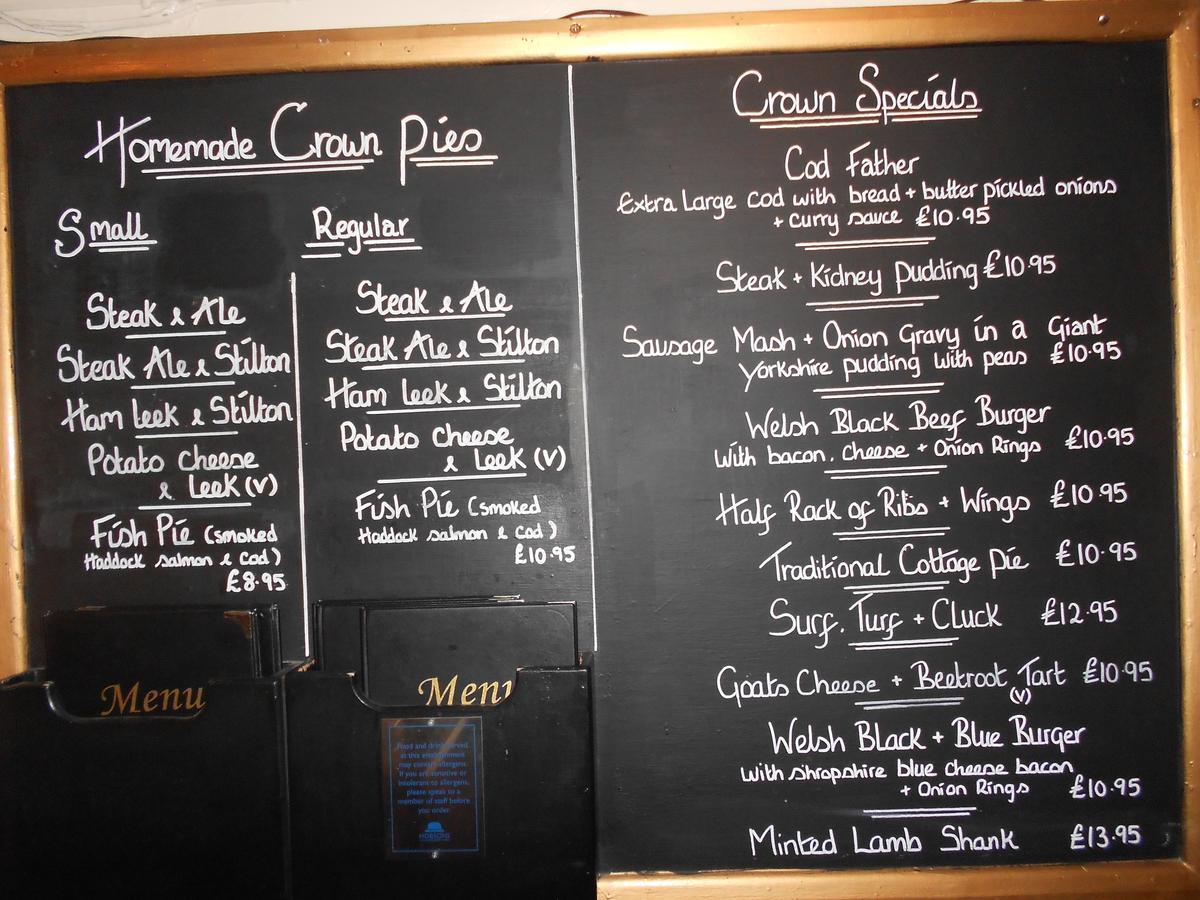 Homemade Crown Pies
Small
Steak & Ale
Steak Ale & Stilton
Ham Leek & Stilton
Potato Cheese
& Leek (V)
Fish Pie (smoked
Haddock salmon & Cod)
£8.95
Regular
Steak & Ale
Steak Ale & Stilton
Ham Leek & Stilton
Potato Cheese
& Leek (V)
Fish Pie (smoked
Haddock salmon & Cod)
£10.95
Crown Specials
Cod Father
Extra Large Cod with bread + butter pickled onions
+ curry sauce £10.95
Steak + Kidney Pudding £10.95
Sausage Mash + Onion Gravy in a Giant
Yorkshire pudding with peas £10.95
Welsh Black Beef Burger
With bacon, cheese + Onion Rings £10.95
Half Rack of Ribs + Wings £10.95
Traditional Cottage Pie £10.95
Surf, Turf + Cluck £12.95
Goats Cheese + Beetroot Tart £10.95
(V)
Welsh Black + Blue Burger
with shropshire blue cheese bacon
+ Onion Rings £10.95
Minted Lamb Shank £13.95
Menu
Menu
Food and drink served
at this establishment
may contain allergens.
If you are sensitive or
intolerant to allergens,
please speak to a
member of staff before
you order.
HOBSONS